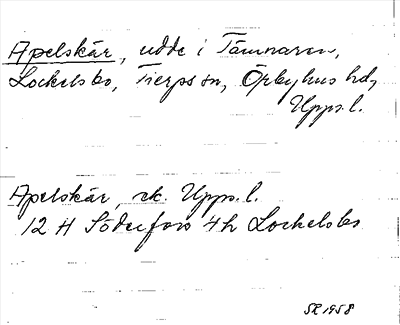 Apelskär, udde i Tämnaren,
Lockelsbo, Tierps sn, Örbyhus hd,
Upps. l.
Apelskär, ek. Upps. l.
12 H Söderfors 4h Lockelsbo
SR 1958